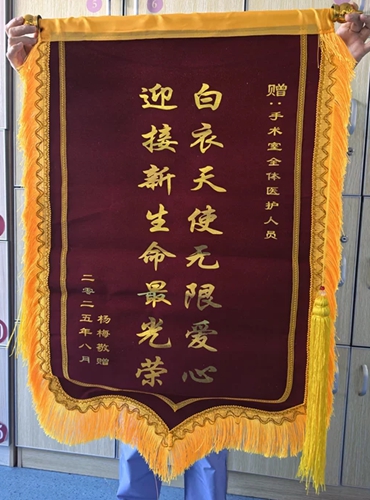 赠：手术室全体医护人员
白衣天使无限爱心
迎接新生命最光荣
杨梅敬赠
二零二五年八月